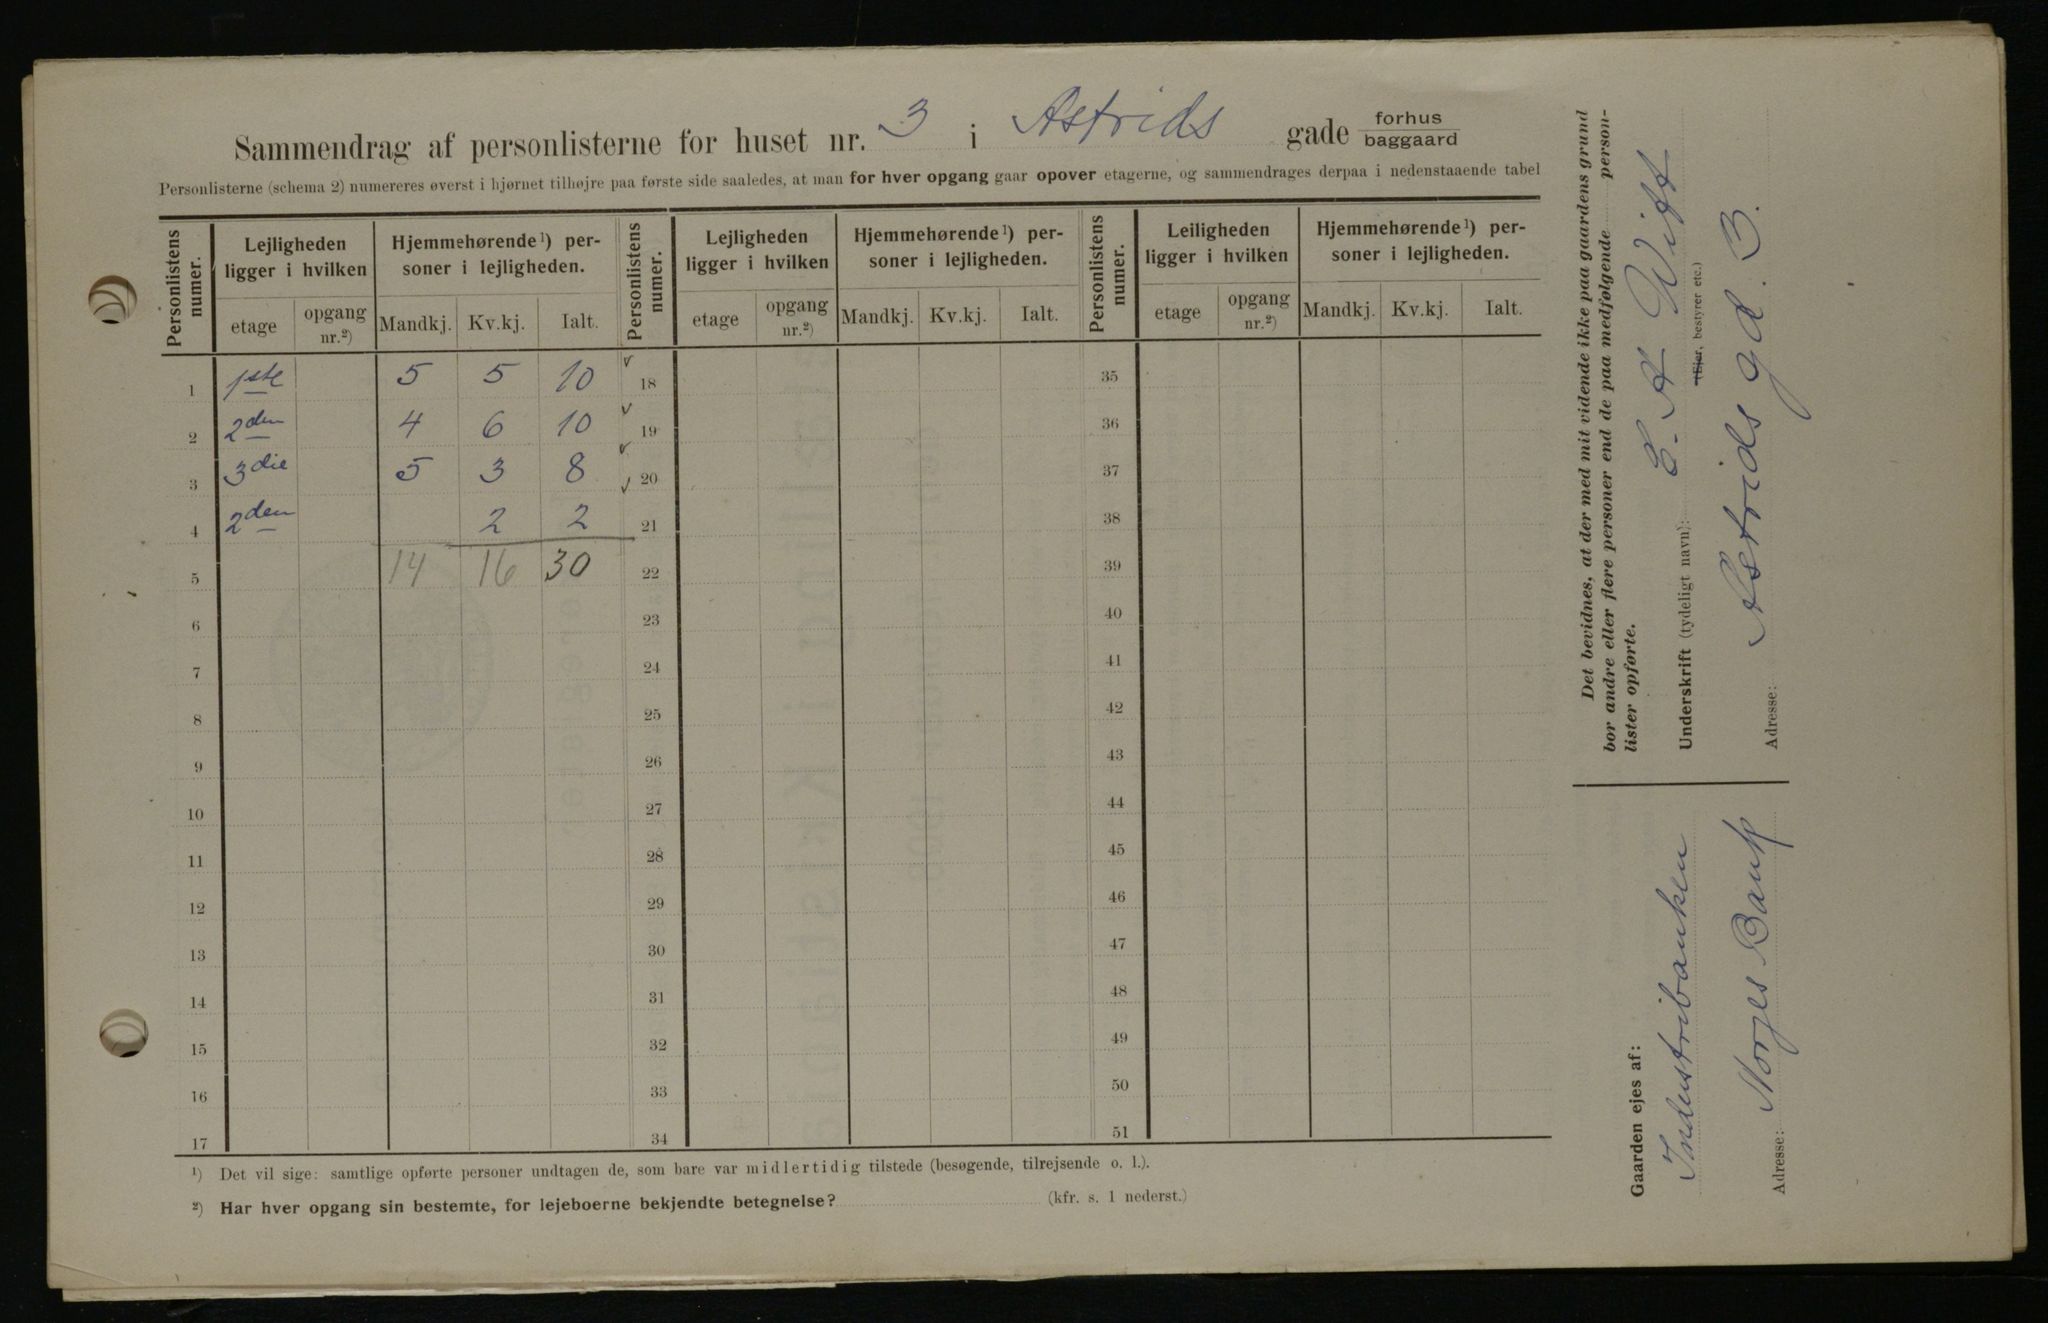 Sammendrag af personlisterne for huset nr. 3 i Astrids gade forhus/baggaard
Personlisterne (schema 2) numereres øverst i hjørnet tilhøjre paa første side saaledes, at man for hver opgang gaar opover etagerne, og sammendrages derpaa i nedenstaaende tabel
Personlistens numer. Lejligheden ligger i hvilken Hjemmehørende ¹) personer i lejligheden. Personlistens numer. Lejligheden ligger i hvilken Hjemmehørende ¹) personer i lejligheden. Personlistens numer. Leiligheden ligger i hvilken Hjemmehørende ¹) personer i lejligheden.
etage opgang nr.²) Mandkj. Kv.kj. Ialt. etage opgang nr.²) Mandkj. Kv.kj. Ialt. etage opgang nr.²) Mandkj. Kv.kj. Ialt.
1 1ste 5 5 10 ✓ 18 35
2 2den 4 6 10 ✓ 19 36
3 3die 5 3 8 ✓ 20 37
4 2den 2 2 ✓ 21 38
5 14 16 30 22 39
6 23 40
7 24 41
8 25 42
9 26 43
10 27 44
11 28 45
12 29 46
13 30 47
14 31 48
15 32 49
16 33 50
17 34 51
¹) Det vil sige: samtlige opførte personer undtagen de, som bare var midlertidig tilstede (besøgende, tilrejsende o. l.).
²) Har hver opgang sin bestemte, for lejeboerne bekjendte betegnelse? (kfr. s. 1 nederst.)
Det bevidnes, at der med mit vidende ikke paa gaardens grund
bor andre eller flere personer end de paa medfølgende personlister opførte.
Underskrift (tydeligt navn): E. A. Witt
(Ejer, bestyrer etc.)
Adresse: Astrids gd. 3.
Gaarden ejes af:
Industribanken
Adresse: Norges Bank